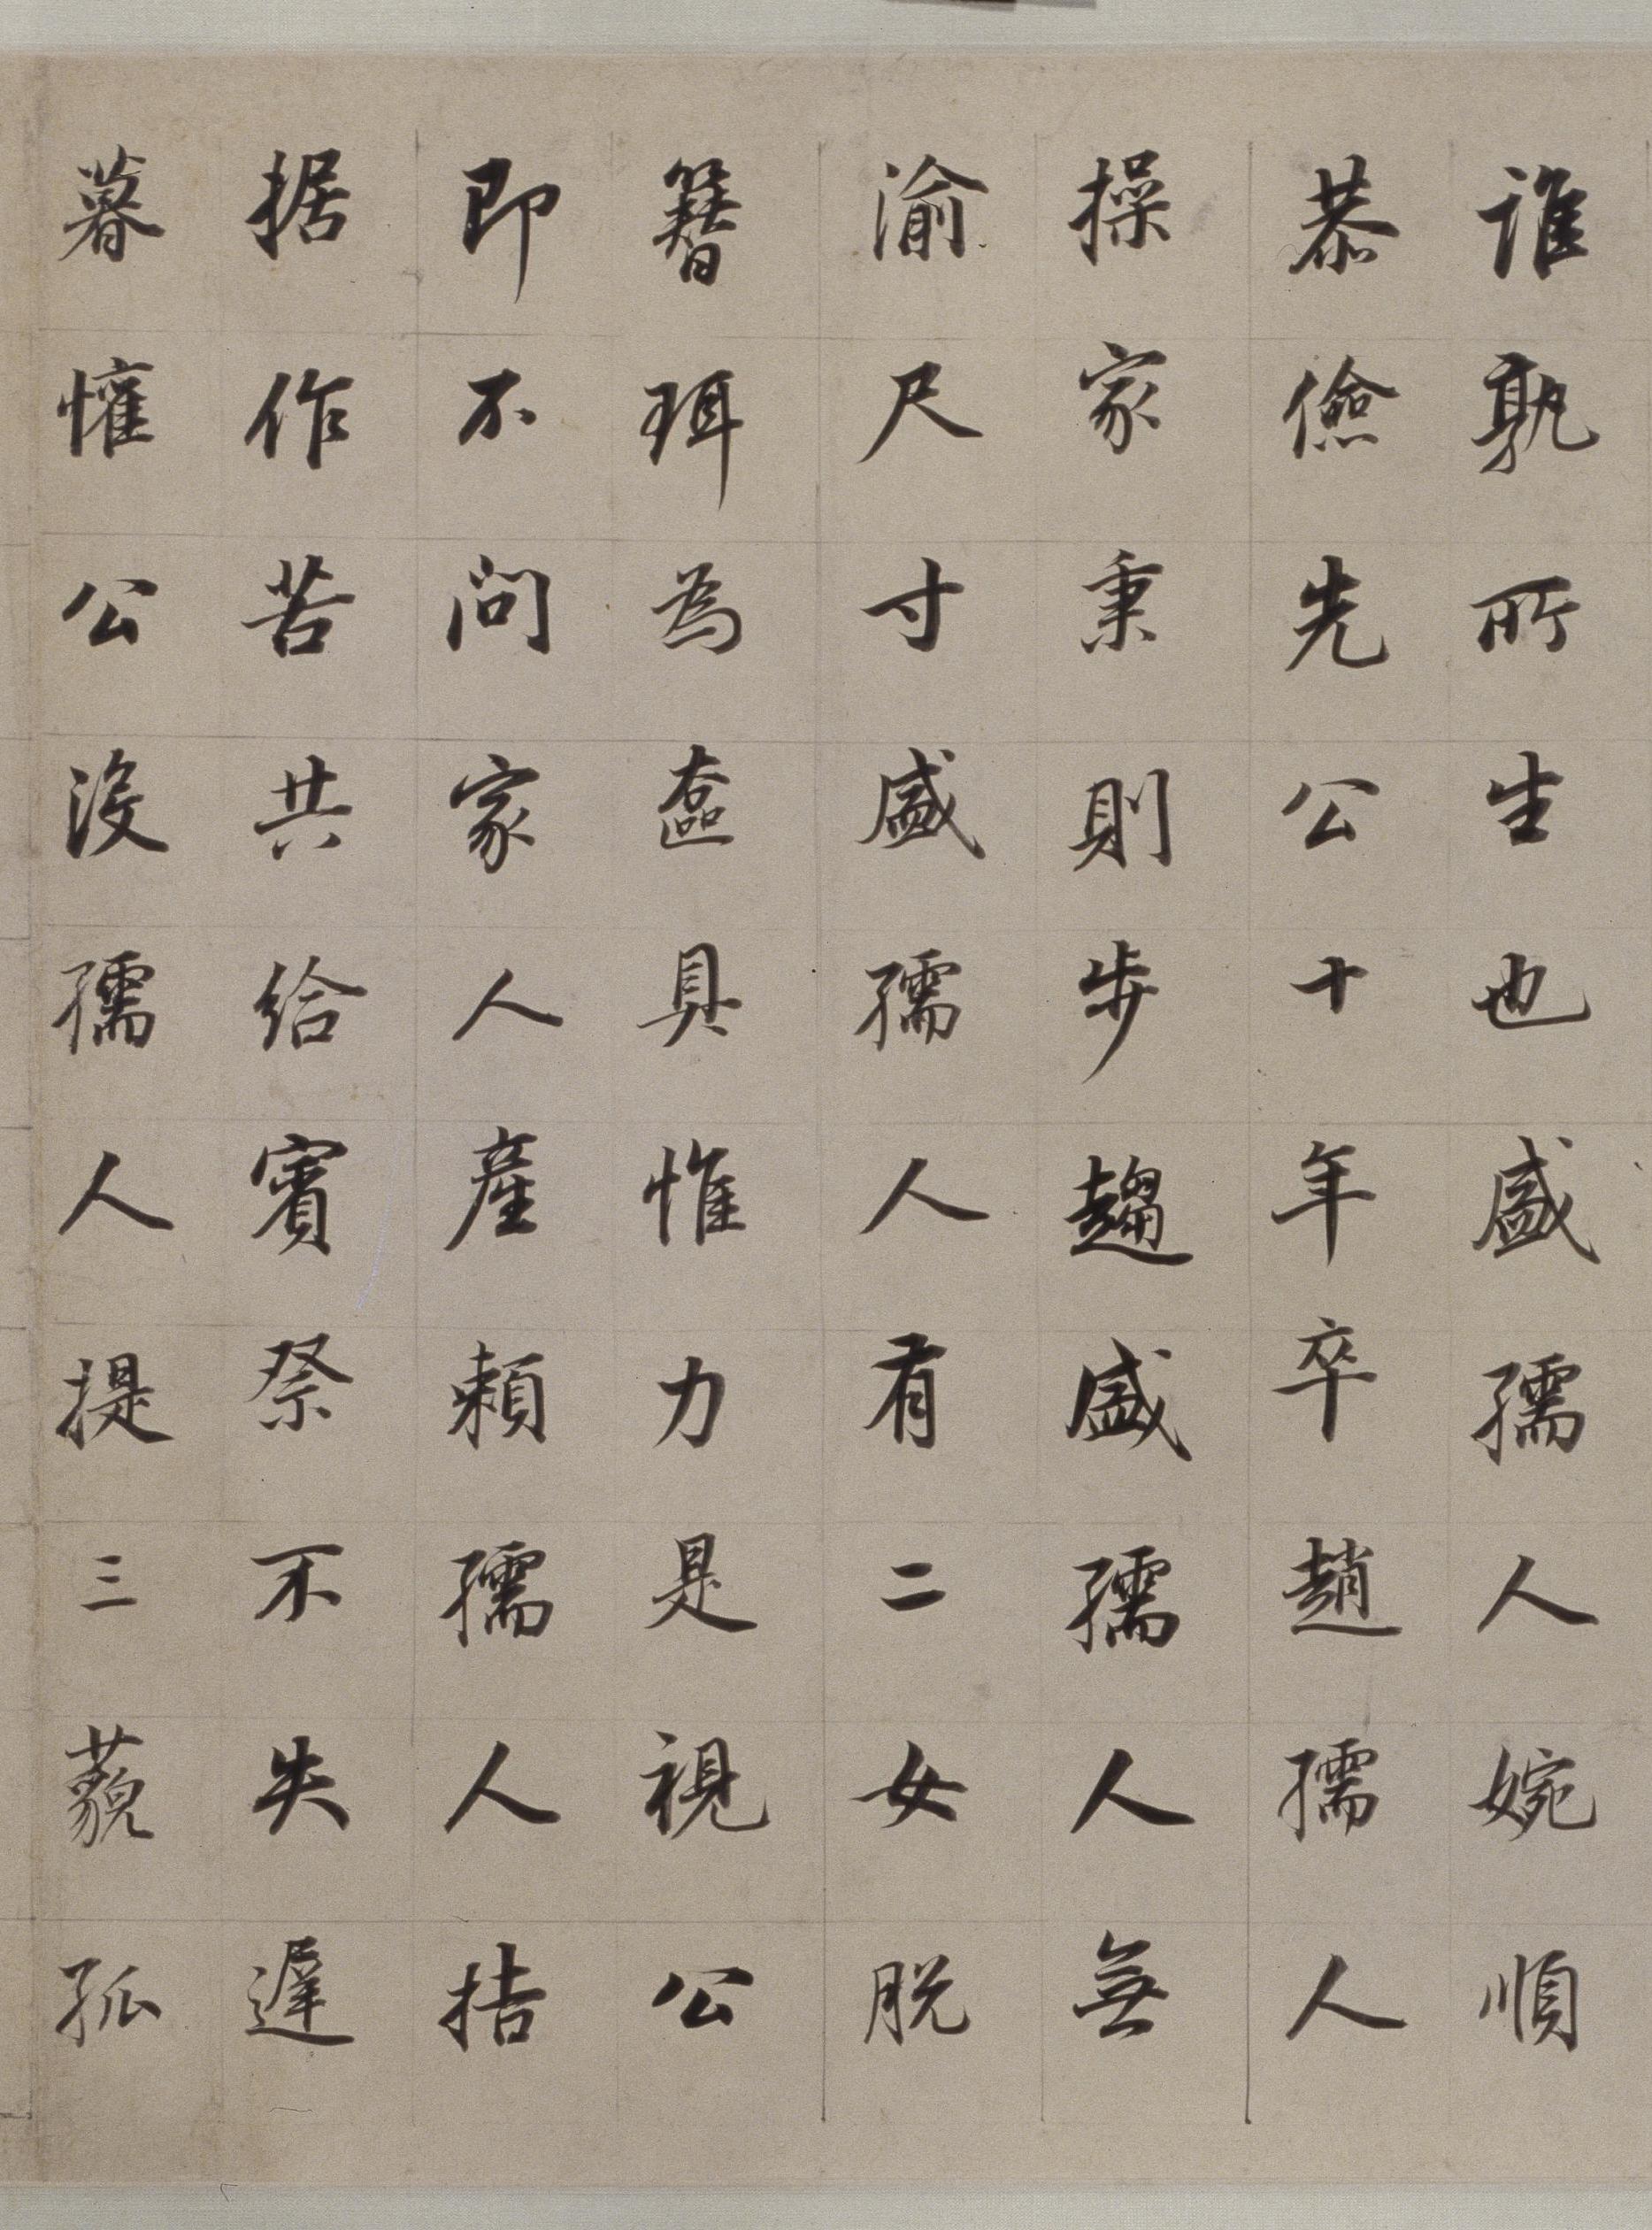 誰孰所生也盛孺人婉順
恭儉先公十年卒趙孺人
操家秉則步趨盛孺人無
渝尺寸盛孺人有二女脫
簪珥為奩具惟力是視公
即不問家人產賴孺人拮
据作苦共給賓祭不失遲
暮懽公沒孺人提三藐孤